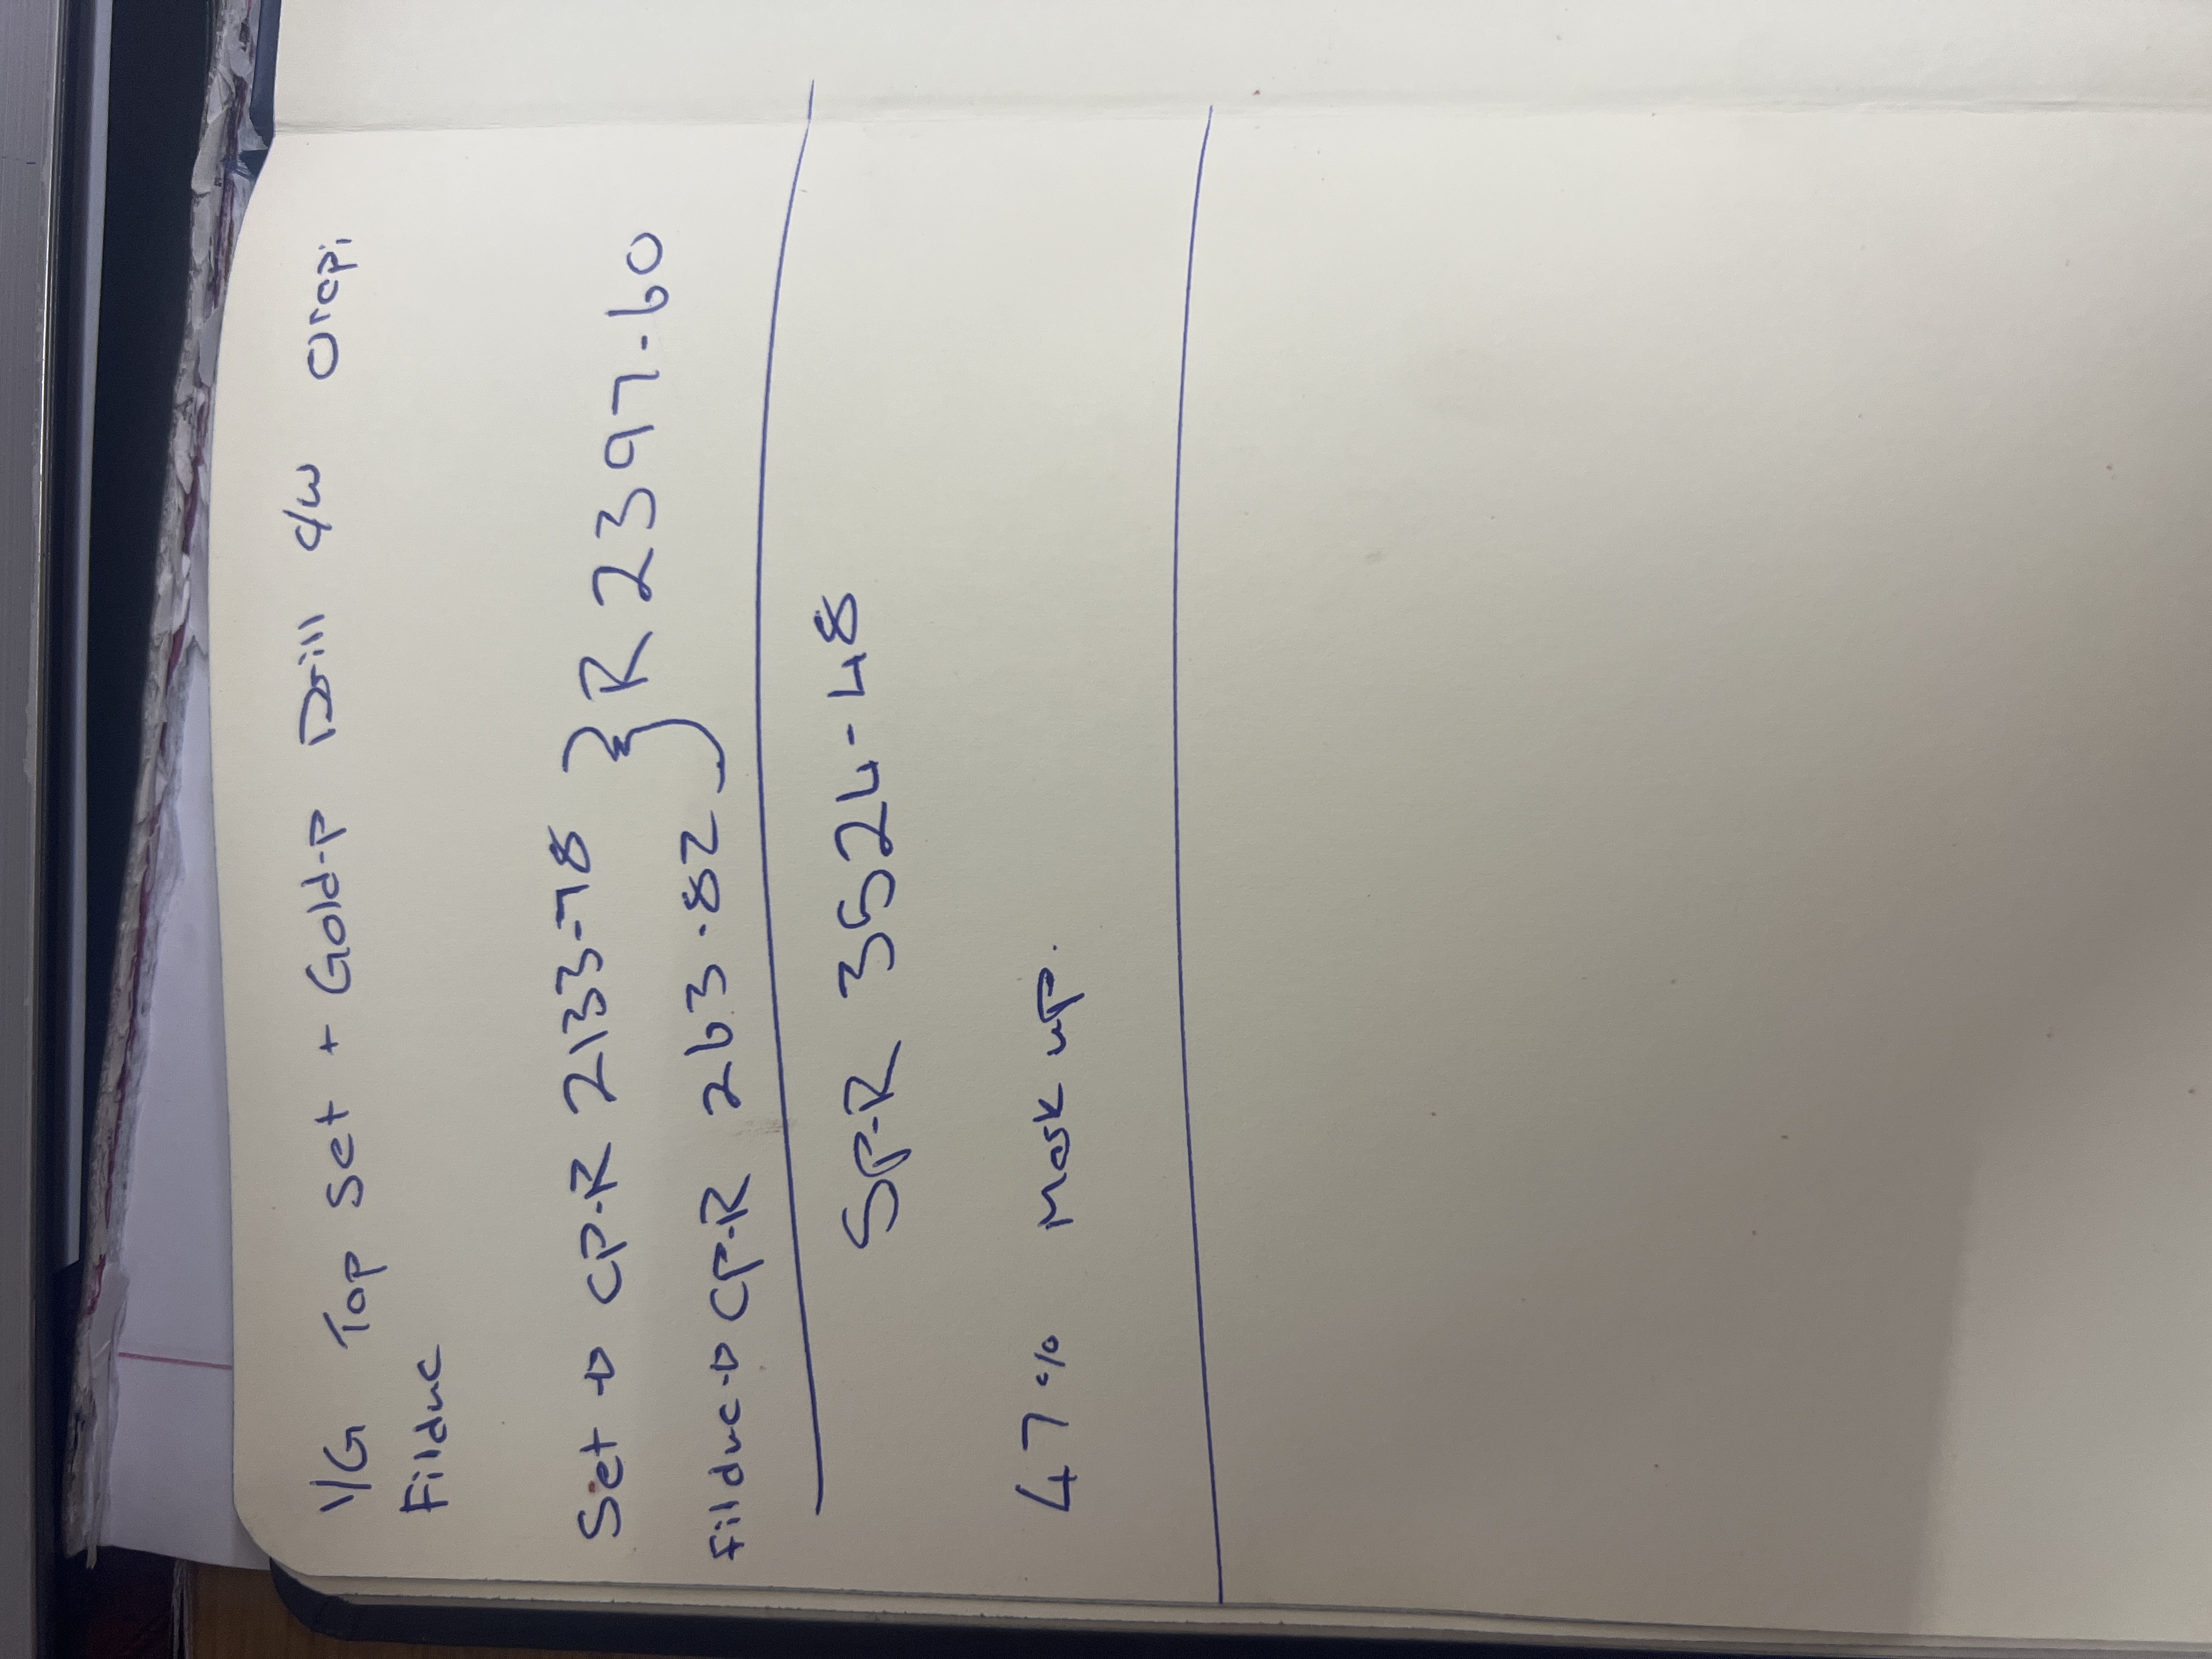 Y/G Top Set + Gold-P Drill c/w Orapi
Filduc
Set → CP-R 2133-78
Filduc → CP-R 263-82
} R 2397-60
SP-R 3524-48
47% Mark up.